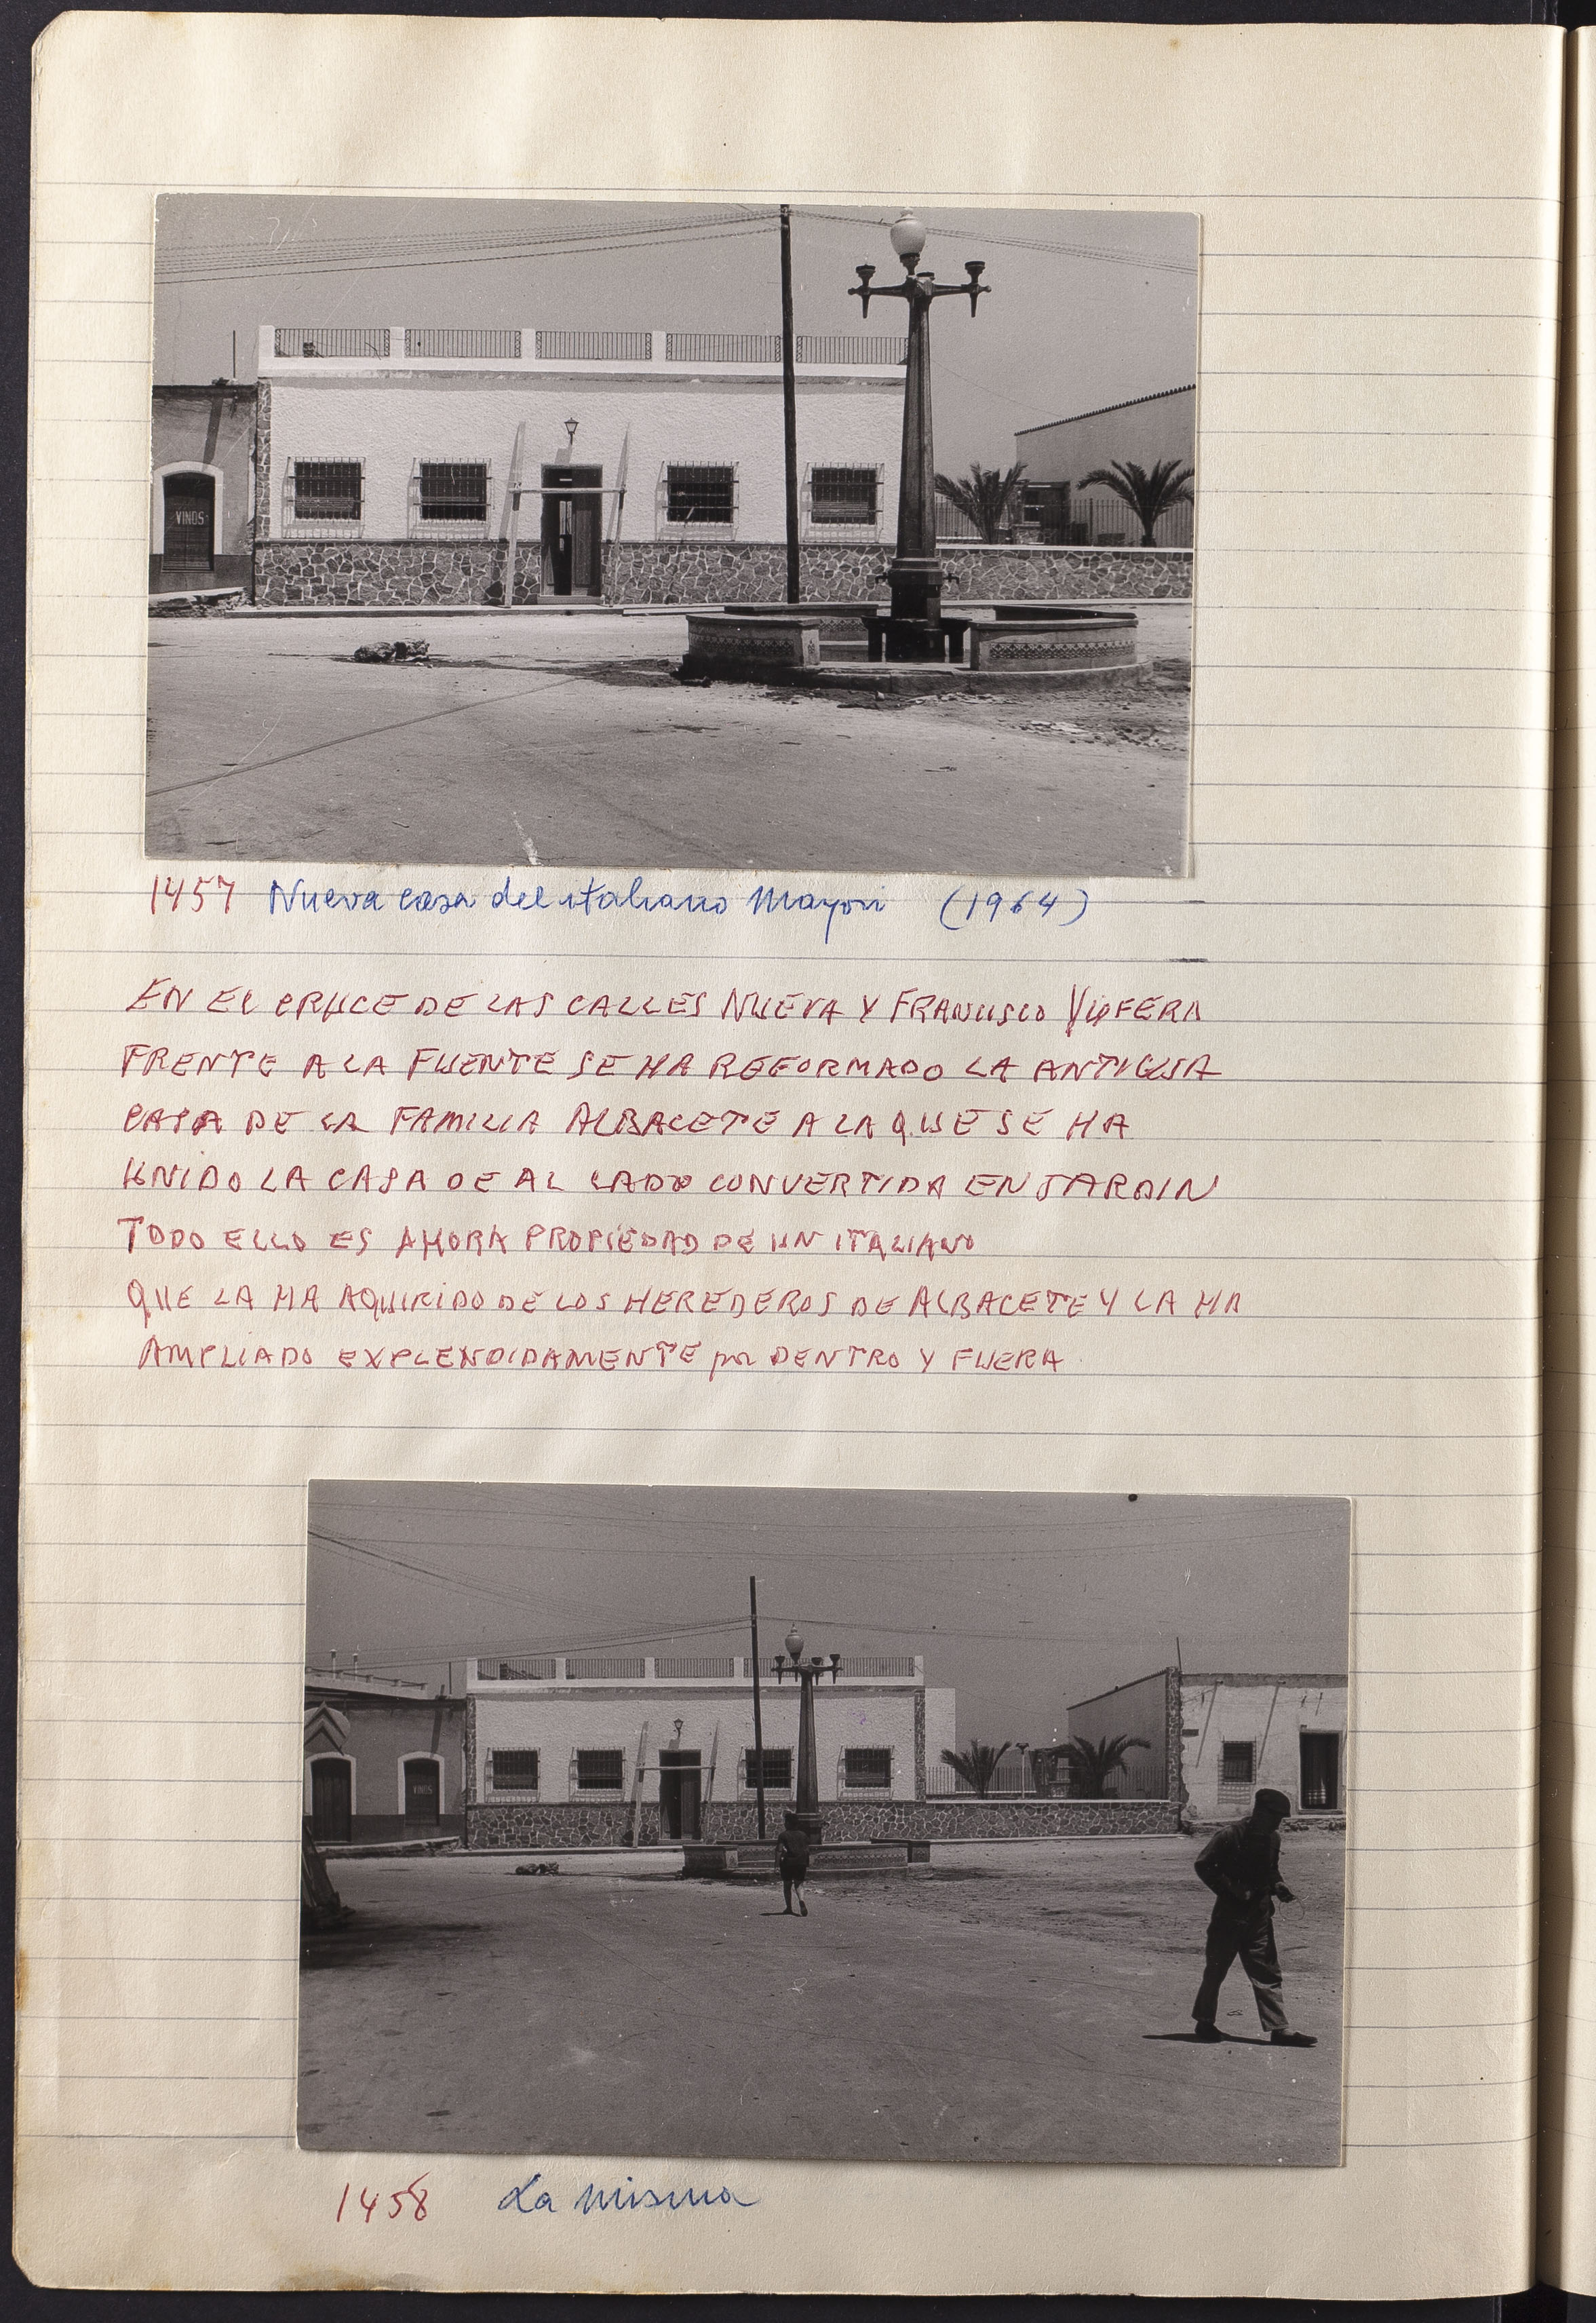 VINOS
1457 Nueva casa del italiano Mayori (1964)
EN EL CRUCE DE LAS CALLES NUEVA Y FRANCISCO
FRENTE A LA FUENTE SE HA REFORMADO LA ANTIGUA
CASA DE LA FAMILIA ALBACETE A LA QUE SE HA
UNIDO LA CASA DE AL LADO CONVERTIDA EN JARDIN
TODO ELLO ES AHORA PROPIEDAD DE UN ITALIANO
QUE LA HA AQUIRIDO DE LOS HEREDEROS DE ALBACETE Y LA HA
AMPLIADO EXPLENDIDAMENTE por DENTRO Y FUERA
VINOS
1458 La misma